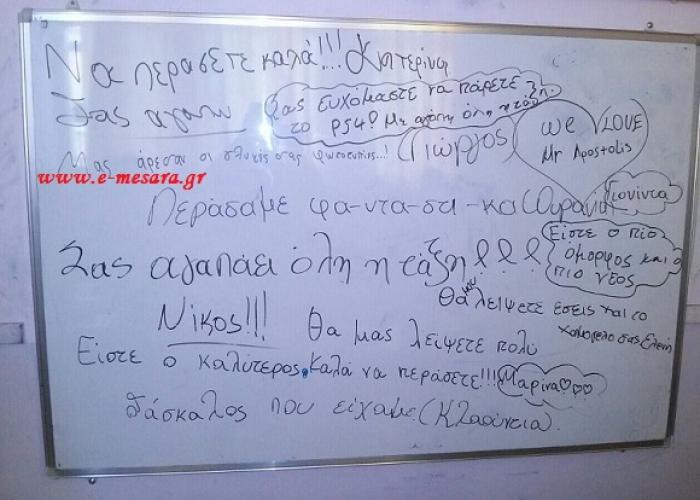 Να περάσετε καλά!!! Κατερίνα
Σας αγαπώ
Σας ευχόμαστε να πάρετε
το PS4! Με αγάπη όλη η τάξη.
we LOVE
Mr Apostolis
Μας άρεσαν οι σας ...! Γιώργος
www.e-mesara.gr
Περάσαμε φα-ντα-στι-κα! Ουρανία
Γιουίντα
Σας αγαπάει όλη η τάξη!!!
Είστε ο πιο
όμορφος και ο
πιο νέος
Θα μου λείψετε εσείς και το
χαμόγελο σας Ελένη
Νίκος!!! Θα μας λείψετε πολύ
Είστε ο καλύτερος. Καλά να περάσετε!!! Μαρίνα♡♡♡
δάσκαλος που είχαμε (Κλαούντεια).